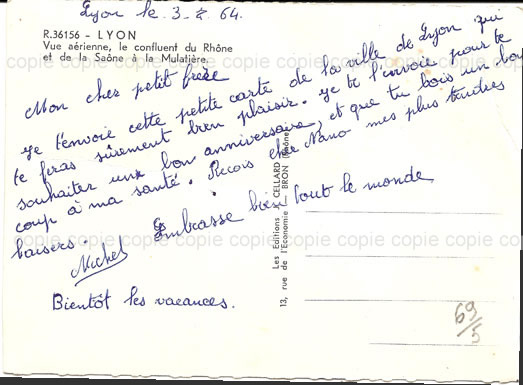 Lyon le 3-7-64.
R.36156 - LYON
Vue aérienne, le confluent du Rhône
et de la Saône à la Mulatière.
Mon cher petit frère
Je t'envoie cette petite carte de la ville de Lyon qui
te feras sûrement bien plaisir. Je te l'envoie pour te
souhaiter un bon anniversaire, et que tu bois un bon
coup à ma santé. Recois cher Nano mes plus tendres
baisers. Embrasse bien tout le monde
Michel
Bientôt les vacances.
Les Editions CELLARD
13, rue de l'Economie BRON (Rhône)
69/5
copie copie copie copie copie copie copie copie
copie copie copie copie copie copie copie copie